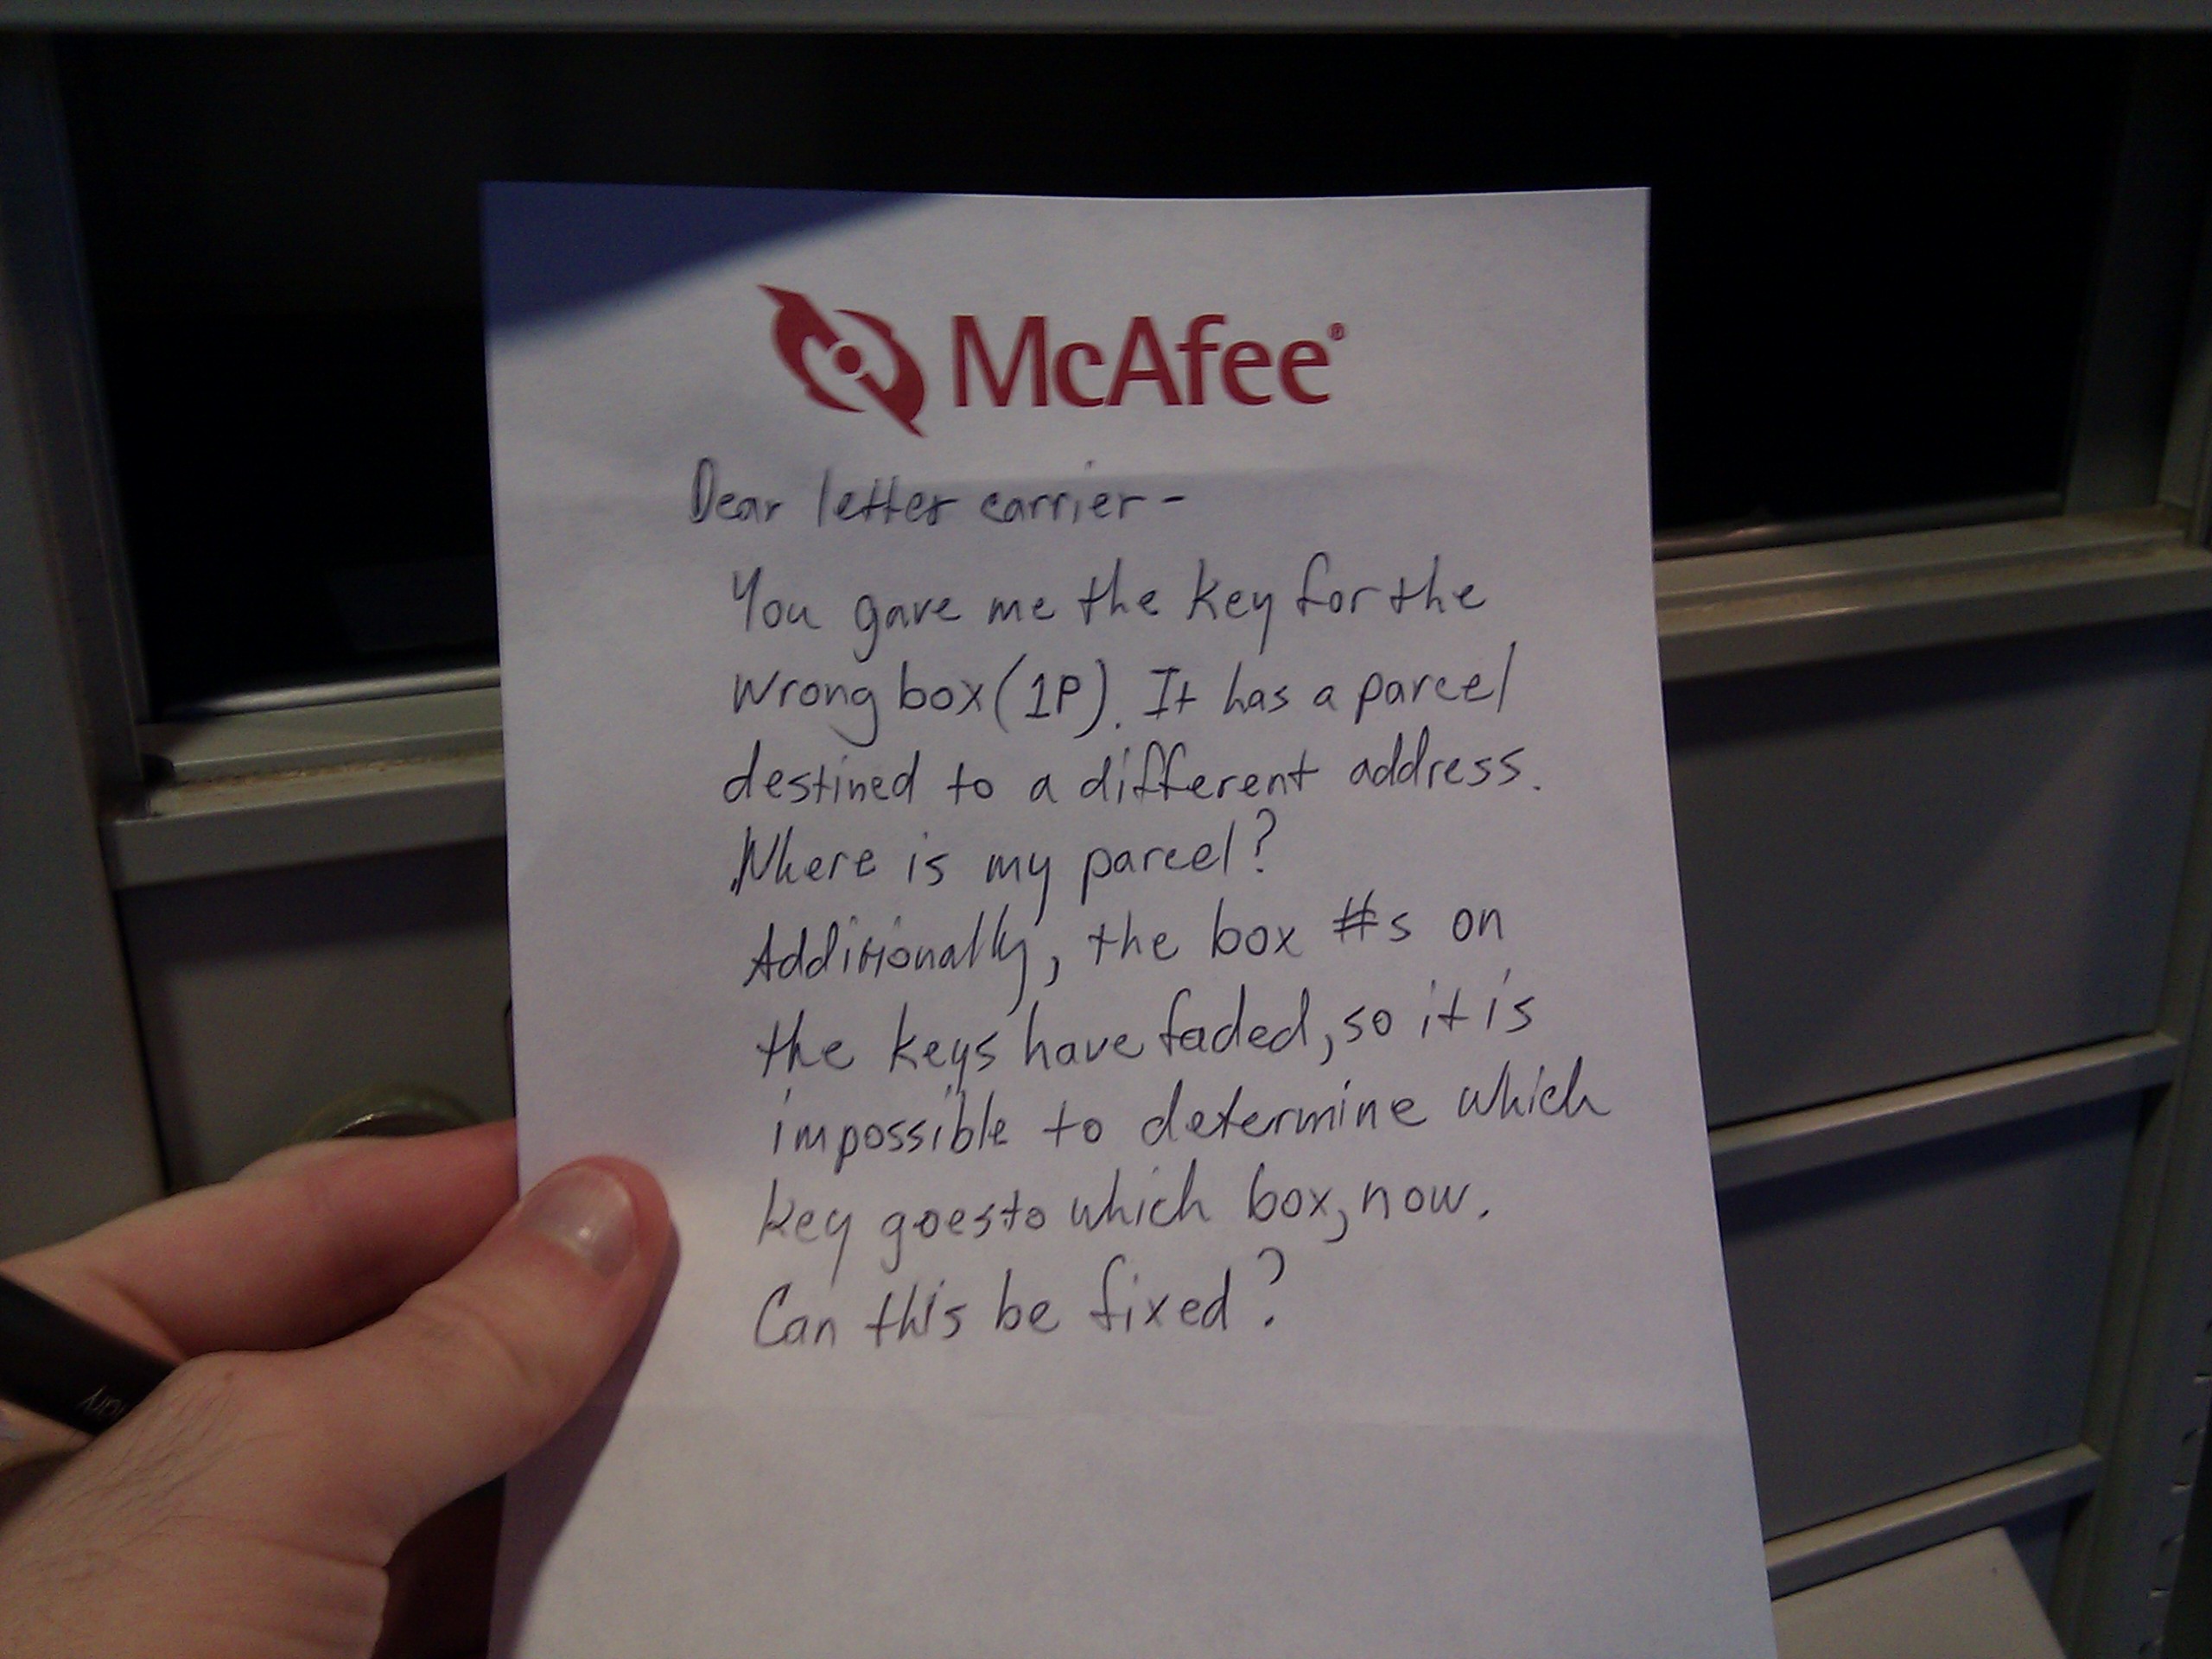 McAfee®
Dear letter carrier-
You gave me the key for the
wrong box (1P). It has a parcel
destined to a different address.
Where is my parcel?
Additionally, the box #s on
the keys have faded, so it is
impossible to determine which
key goes to which box, now.
Can this be fixed?